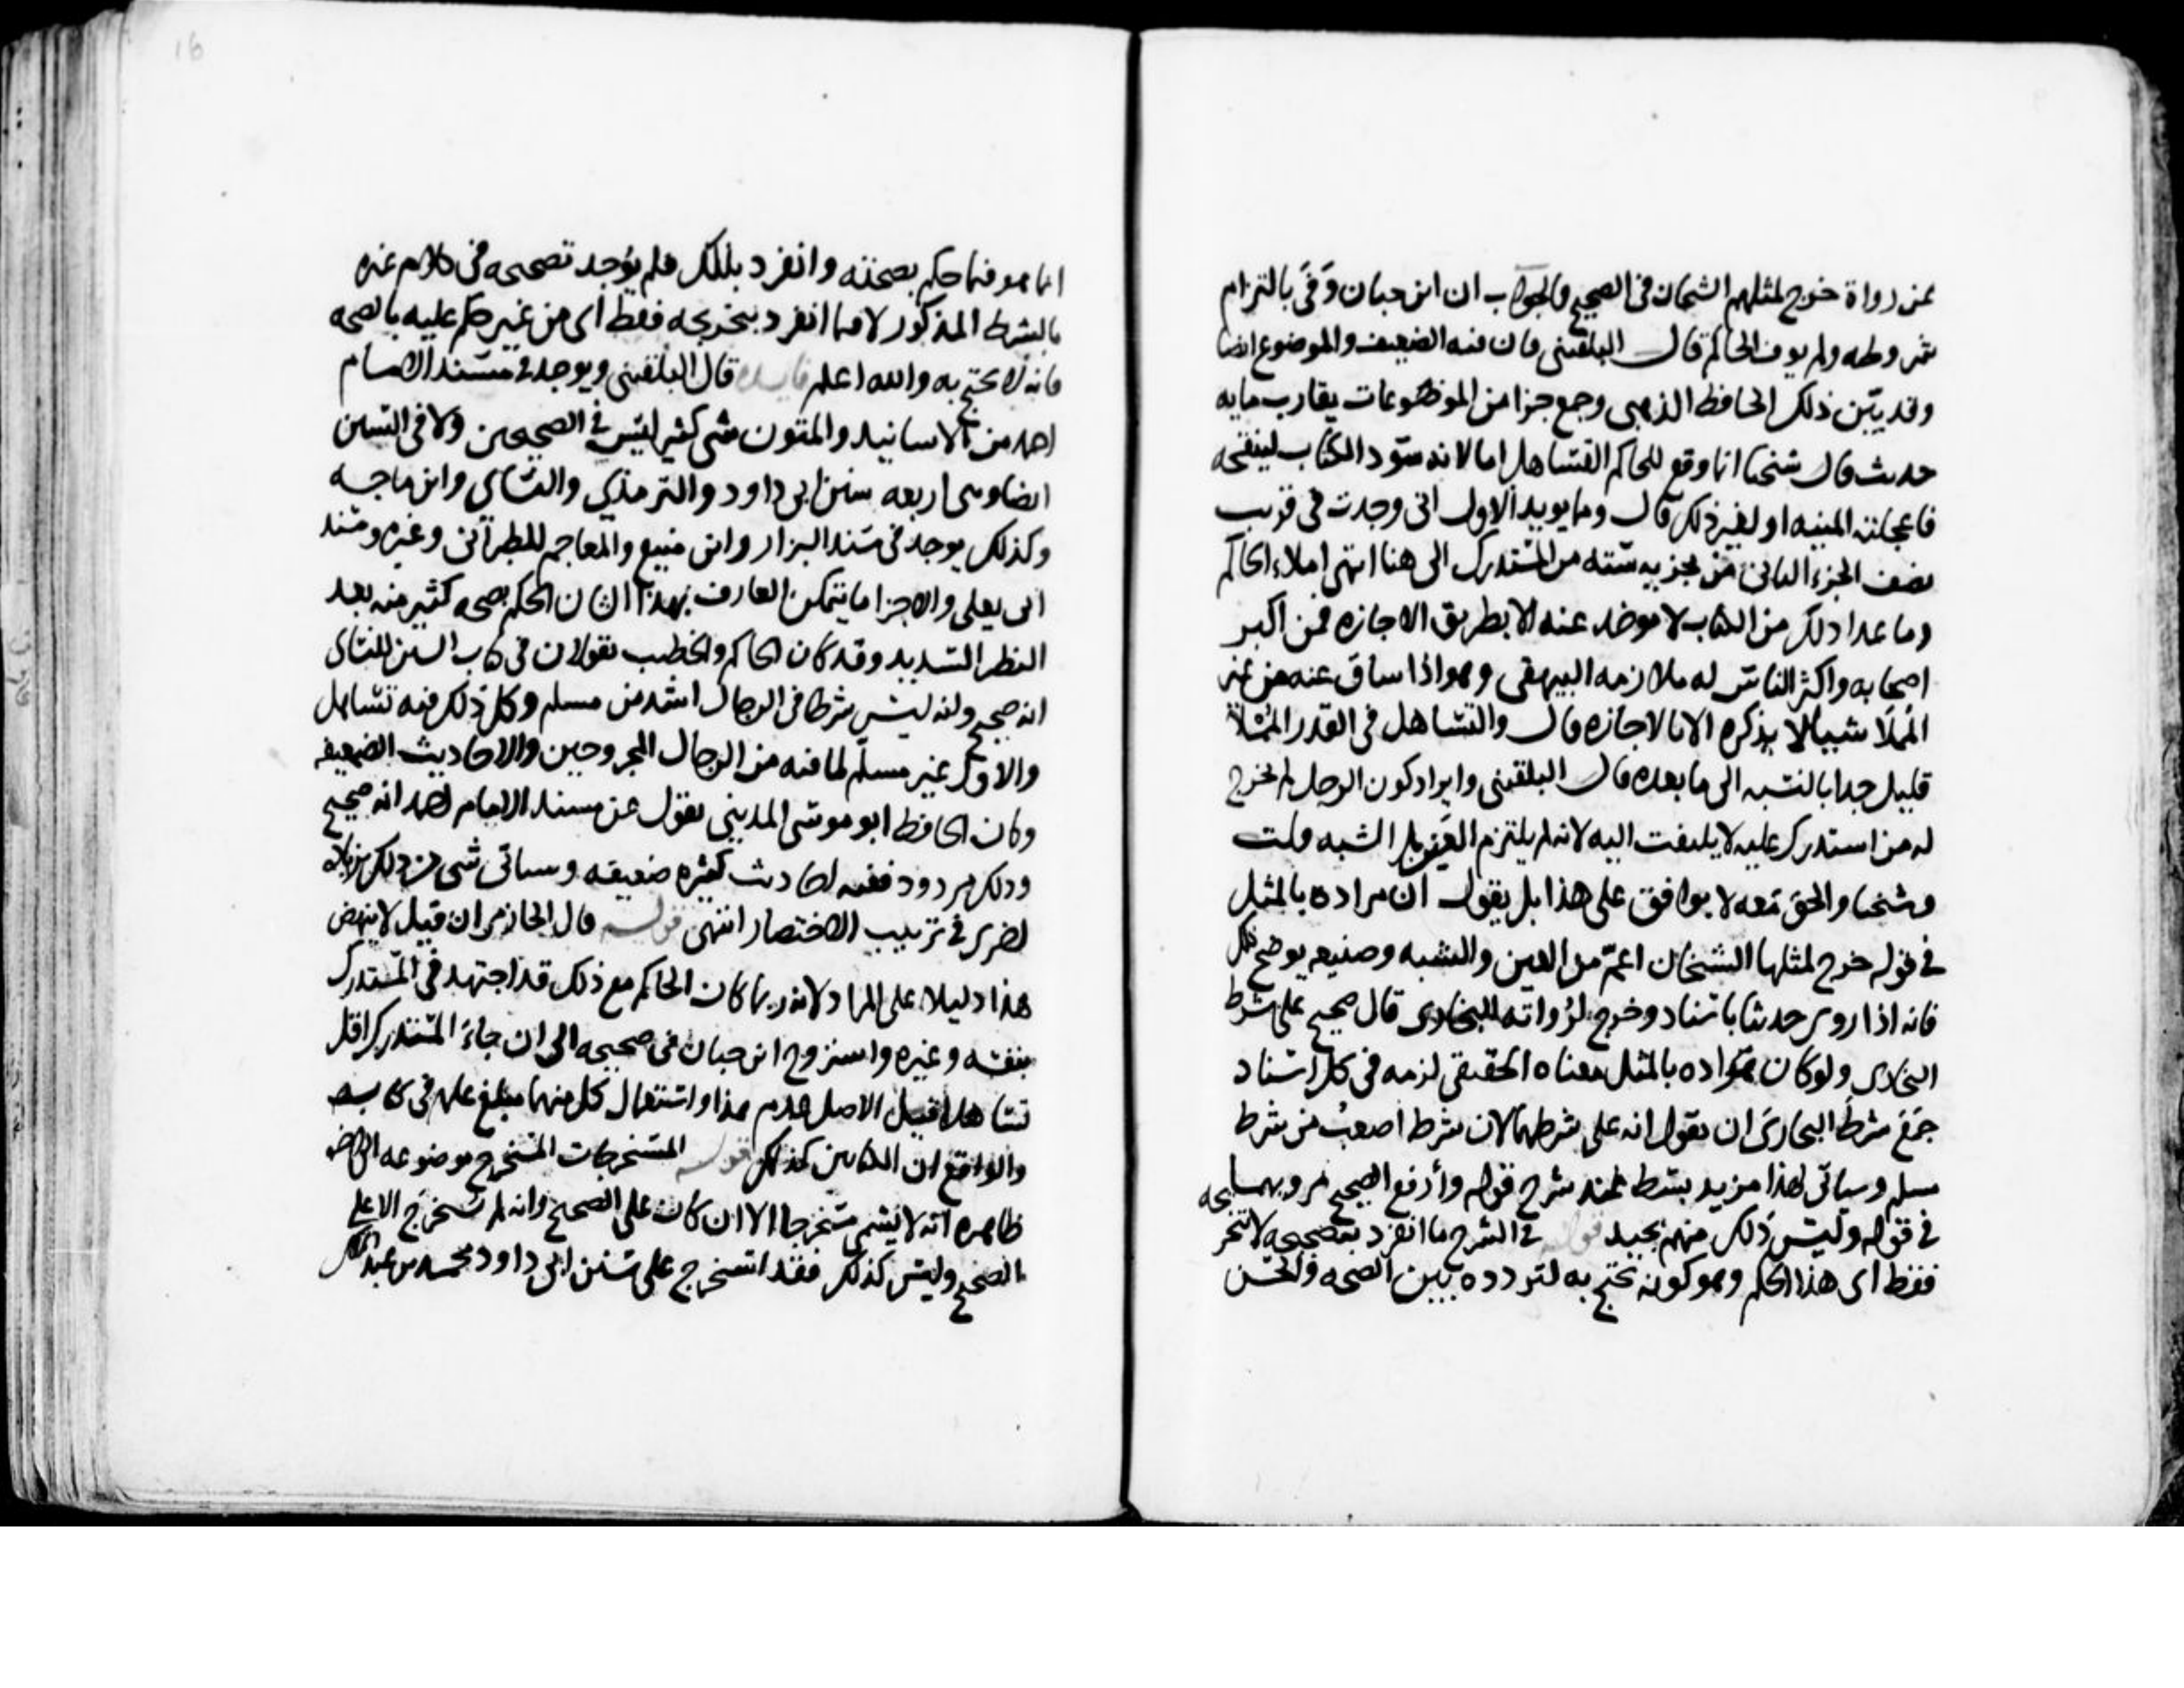 عن رواة خرج لمثلهم الشيخان في الصحيح والجواب ان ابن حبان وَفَى بالتزام
شروطه ولم يوف الحاكم قال البلقيني فان فيه الضعيف والموضوع ايضا
وقد بيّن ذلك الحافظ الذهبي وجمع جزا من الموضوعات يقارب مايه
حديث قال شيخنا انما وقع للحاكم التساهل اما لانه سوّد الكتاب لينقحه
فاعجلته المنيه او لغير ذلك قال ومما يويد الاول انى وجدت في قريب
نصف الجزء الثاني من تجزيه سته من المستدرك الى هنا انتهى املاء الحاكم
وما عدا ذلك من الكتاب لا يوخذ عنه الا بطريق الاجازه فمن اكبر
اصحابه واكثر الناس له ملازمه البيهقي وهو اذا ساق عنه من غير
المُملا شيا لا يذكره الا بالاجازه قال والتساهل في القدر المُملا
قليل جدا بالنسبه الى ما بعده قال البلقيني وايراد كون الرجل لم يخرج
له من استدرك عليه لا يلتفت اليه لانه لم يلتزم العين بل الشبه قلت
وشيخنا والحق معه لا يوافق على هذا بل يقول ان مراده بالمثل
في قوله خرج لمثلها الشيخان اعمّ من العين والشبه وصنيعه يوضح ذلك
فانه اذا روى حديثا باسناد وخرج لرُواته البخارى قال صحيح على شرط
البخارى ولو كان مراده بالمثل معناه الحقيقي لزمه في كل اسناد
جَمَعَ شرطَ البخارى ان يقول انه على شرطهما لان شرط اصعبُ من شرط
مسلم وسياتى لهذا مزيد بسط عند شرح قوله وأرفع الصحيح مرويهما
في قوله وليس ذلك منهم بجيد قوله في الشرح ما انفرد بتصحيحه لا بتخريجه
فقط اى هذا الحكم وهو كونه يحتج به لتردده بين الصحه والحسن
انما هو فيما حكم بصحته وانفرد بذلك فلم يُوجد تصحيحه في كلام غيره
بالشرط المذكور لا فيما انفرد بتخريجه فقط اى من غير حكم عليه بالصحه
فانه لا يحتج به والله اعلم فايده قال البلقيني ويوجد في مسند الامام
احمد من الاسانيد والمتون شى كثير ليس في الصحيحين ولا في السنن
ايضا وهى اربعه سنن ابى داود والترمذي والنساي وابن ماجه
وكذلك يوجد في مسند البزار وابن منيع والمعاجم للطبرانى وغيره ومسند
ابى يعلى والاجزا ما يتمكن العارف بهذا الشان الحكم بصحه كثير منه بعد
النظر الشديد وقد كان الحاكم والخطيب يقولان في كتاب السنن للنساى
انه صحيح وانه ليس شرطا في الرجال اشد من مسلم وكل ذلك فيه تساهل
والاول غير مسلّم لما فيه من الرجال المجروحين والاحاديث الضعيفه
وكان الحافظ ابو موسى المديني يقول عن مسند الامام احمد انه صحيح
وذلك مردود ففيه احاديث كثيره ضعيفه وسياتى شى من ذلك
اخرى في ترتيب الاختصار انتهى قوله قال الحازمى ان قيل لا ينهض
هذا دليلا على المراد لانه ربما كان الحاكم مع ذلك قد اجتهد في المستدرك
بنفسه وغيره واستروح ابن حبان في صحيحه الى ان جاءَ المستدرك اقل
تساهلا قيل الاصل عدم هذا واستعمال كل منهما مبلغ علمه في كتابه
والواقع ان الكتابين كذلك قوله المستخرجات المستخرج موضوعه الى اخره
ظاهره انه لا يسمى مستخرجا الا ان كان على الصحيح وانه لم يُستخرَج الا على
الصحيح وليس كذلك فقد استخرج على سنن ابى داود محمد بن عبد الملك